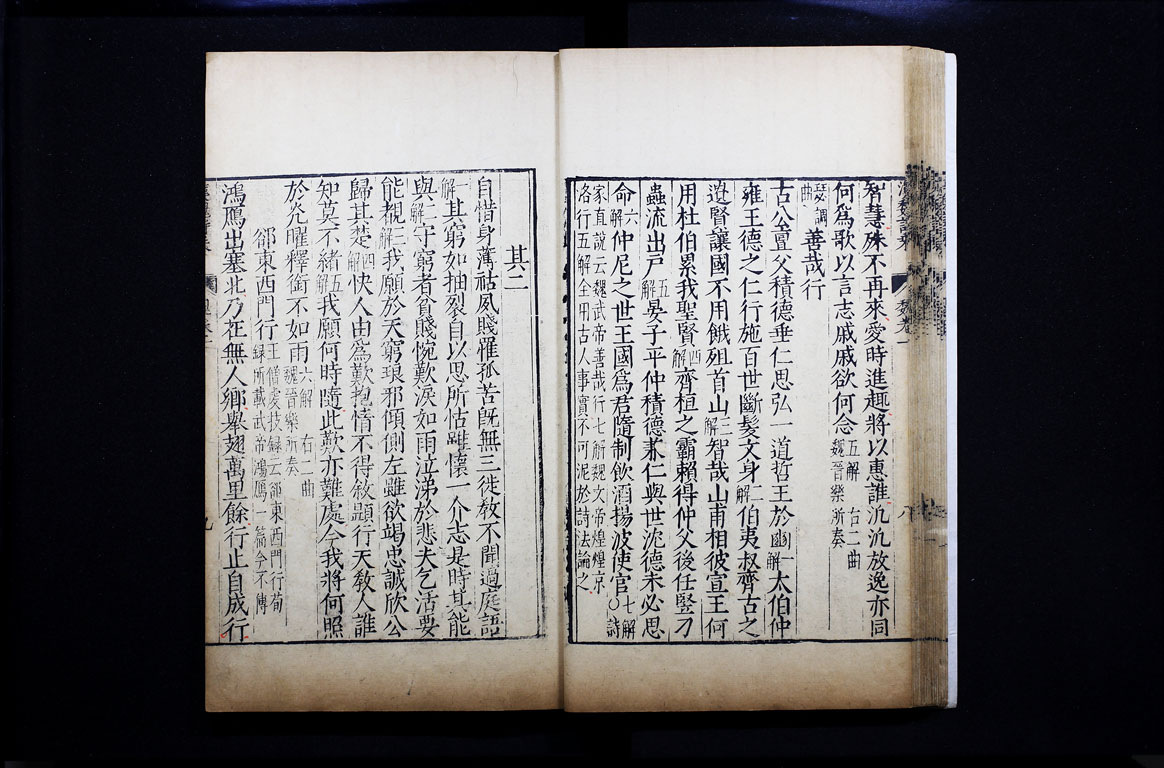 智慧殊不再來愛時進趣將以惠誰汎汎放逸亦同
何爲歌以言志戚戚欲何念五解 右二曲魏晉樂所奏
瑟調曲善哉行
古公亶父積德垂仁思弘一道哲王於豳一解太伯仲
雍王德之仁行施百世斷髮文身二解伯夷叔齊古之
遺賢讓國不用餓殂首山三解智哉山甫相彼宣王何
用杜伯累我聖賢四解齊桓之霸賴得仲父後任豎刁
蟲流出戶五解晏子平仲積德兼仁與世沈德未必思
命六解仲尼之世王國爲君隨制飲酒揚波使官七解○詩
家直説云魏武帝善哉行七解魏文帝煌煌京
洛行五解全用古人事實不可泥於詩法論之
其二
自惜身薄祜夙賤罹孤苦旣無三徙敎不聞過庭語
一解其窮如抽裂自以思所怙雖懷一介志是時其能
與二解守窮者貧賤惋歎淚如雨泣涕於悲夫乞活要
能覩三解我願於天窮琅邪傾側左雖欲竭忠誠欣公
歸其楚四解快人由爲歎抱情不得敘顯行天敎人誰
知莫不緒五解我願何時隨此歎亦難處今我將何照
於光曜釋銜不如雨六解 右二曲魏晉樂所奏
郤東西門行王僧虔技録云郤東西門行荀録所載武帝鴻鴈一篇今不傳
鴻鴈出塞北乃在無人鄉舉翅萬里餘行止自成行